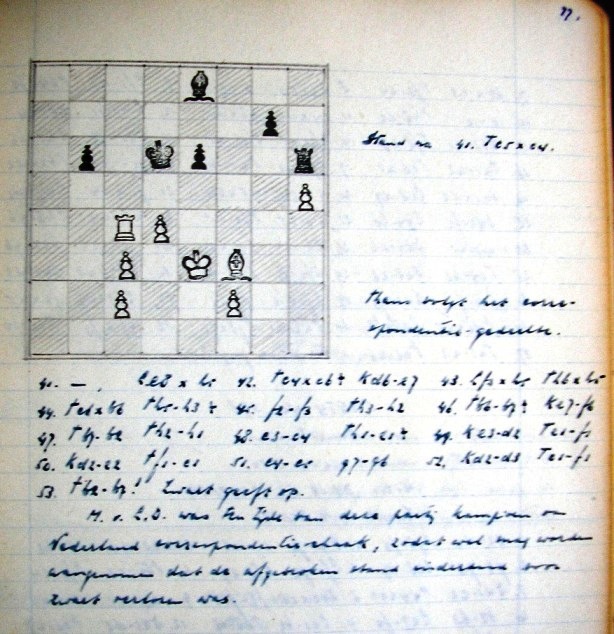 Stand na 41. Tc5xc4.
Thans volgt het corre-
spondentie-gedeelte.
41. —, Le8xh5 42. Tc4xc6† Kd6-e7 43. Lf3xh5 Th6xh5
44. Tc6xb6 Th5-h3† 45. f2-f3 Th3-h2 46. Tb6-b7† Ke7-f6
47. Tb7-b2 Th2-h1 48. c3-c4 Th1-e1† 49. Ke3-d2 Te1-f1
50. Kd2-e2 Tf1-c1 51. c4-c5 g7-g6 52. Kd2-d3 Tc1-f1
53. Tb2-b7! Zwart geeft op.
M. v. L.D. was ten tijde van deze partij kampioen van
Nederland correspondentieschaak, zodat wel mag worden
aangenomen dat de afgebroken stand inderdaad voor
zwart verloren was.